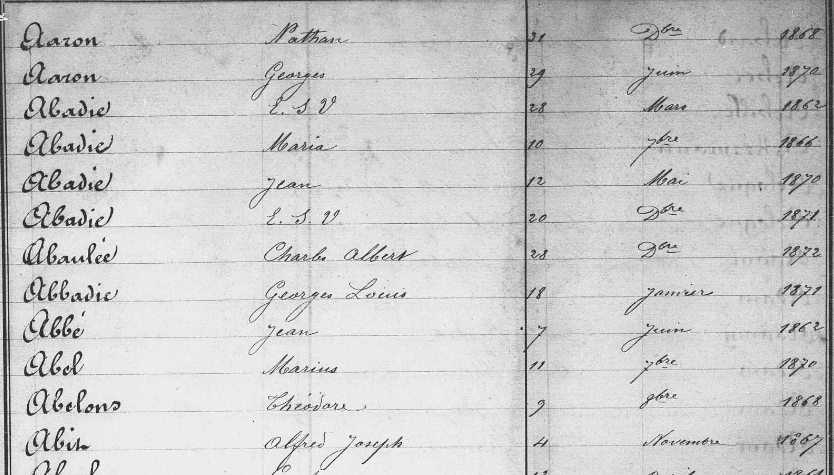 Aaron Nathan 31 Dbre 1868
Aaron Georges 29 Juin 1870
Abadie E. S. V 28 Mars 1862
Abadie Maria 10 7bre 1866
Abadie Jean 12 Mai 1870
Abadie E. S. V. 20 Dbre 1871
Abaulée Charles Albert 28 Dbre 1872
Abbadie Georges Louis 18 Janvier 1871
Abbé Jean 7 Juin 1862
Abel Marius 11 7bre 1870
Abelons Théodore 9 9bre 1868
Abit Alfred Joseph 4 Novembre 1867